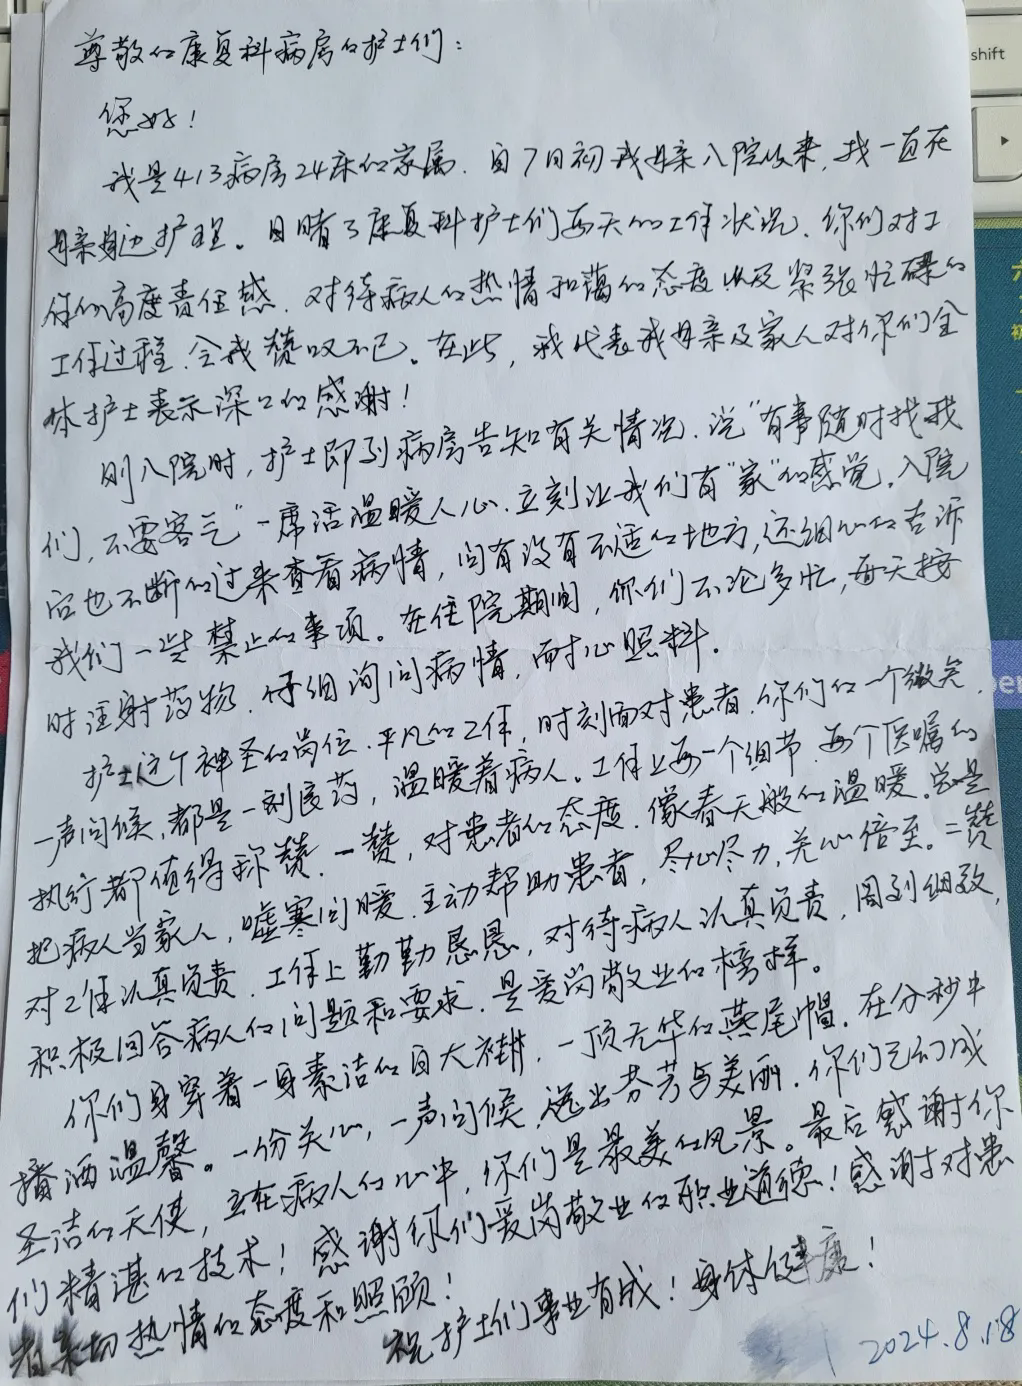 尊敬的康复科病房的护士们：
您好！
我是413病房24床的家属．自7月初我母亲入院以来，我一直在
母亲身边护理。目睹了康复科护士们每天的工作状况．你们对工
作的高度责任感．对待病人的热情和蔼的态度以及紧张忙碌的
工作过程．令我赞叹不已。在此，我代表我母亲及家人对你们全
体护士表示深深的感谢！
刚入院时，护士即到病房告知有关情况．说“有事随时找我
们，不要客气”一席话温暖人心．立刻让我们有“家”的感觉．入院
后也不断的过来查看病情，问有没有不适的地方，还细心的告诉
我们一些禁止的事项。在住院期间，你们不论多忙，每天按
时注射药物．仔细询问病情，耐心照料．
护士这个神圣的岗位．平凡的工作，时刻面对患者．你们的一个微笑．
一声问候，都是一剂医药，温暖着病人。工作上每一个细节．每个医嘱的
执行都值得称赞．一赞，对患者的态度．像春天般的温暖．总是
把病人当家人，嘘寒问暖．主动帮助患者，尽心尽力，关心倍至。二赞
对工作认真负责．工作上勤勤恳恳，对待病人认真负责，周到细致，
积极回答病人的问题和要求．是爱岗敬业的榜样。
你们身穿着一身素洁的白大褂．一顶无华的燕尾帽．在分秒中
播洒温馨。一份关心，一声问候．送出芬芳与美丽．你们已幻成
圣洁的天使，立在病人的心中，你们是最美的风景。最后感谢你
们精湛的技术！感谢你们爱岗敬业的职业道德！感谢对患
者亲切热情的态度和照顾！
祝护士们事业有成！身体健康！
2024.8.18
shift